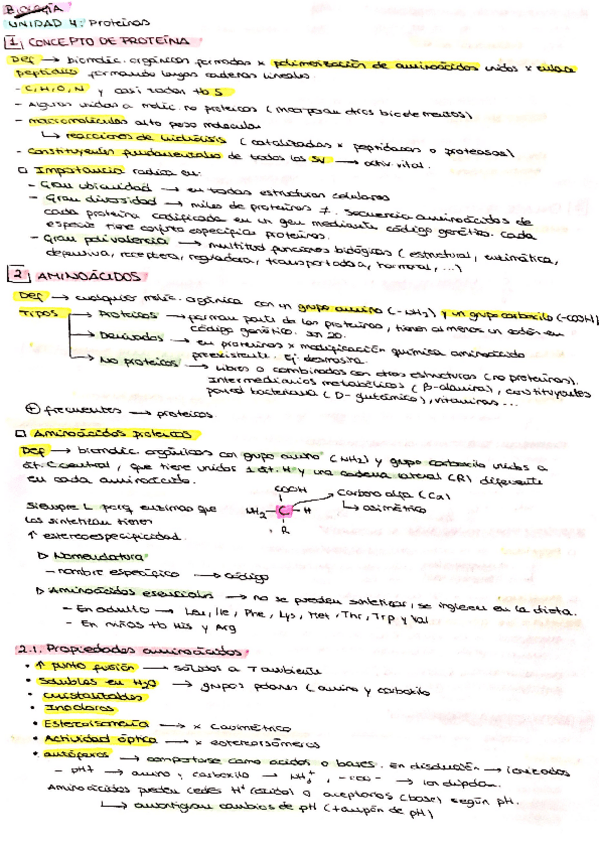 BIOLOGÍA
UNIDAD 4: Proteínas
1 CONCEPTO DE PROTEÍNA
Def → biomoléc. orgánicas formadas x polimerización de aminoácidos unidos x enlace
peptídico formando largas cadenas lineales.
- C, H, O, N y casi todas tb S
- Algunas unidas a moléc. no proteicas (incorporan otros bioelementos)
- macromoléculas alto peso molecular
↳ reacciones de hidrólisis (catalizadas x peptidasas o proteasas)
- Constituyentes fundamentales de todos los SV → activ. vital.
□ Importancia radica en:
- Gran ubicuidad → en todas estructuras celulares
- Gran diversidad → miles de proteínas ≠. Secuencia aminoácidos de
cada proteína codificada en un gen mediante código genético. Cada
especie tiene conjunto específicas proteínas.
- Gran polivalencia → multitud funciones biológicas (estructural, enzimática,
defensiva, receptora, reguladora, transportadora, hormonal, ...)
2 AMINOÁCIDOS
Def → cualquier moléc. orgánica con un grupo amino (-NH2) y un grupo carboxilo (-COOH)
TIPOS → Proteicos → forman parte de las proteínas, tienen al menos un codón en
código genético. Son 20.
→ Derivados → en proteínas x modificación química aminoácido
preexistente. Ej: desmosina.
→ No proteicos → libres o combinados con otras estructuras (no proteínas).
Intermediarios metabólicos (β-alanina), constituyentes
pared bacteriana (D-glutámico), vitaminas...
⊕ frecuentes → proteicos
□ Aminoácidos proteicos
Def → biomoléc. orgánicas con grupo amino (NH2) y grupo carboxilo unidos a
át. C central, que tiene unidos 1 át. H y una cadena lateral (R) diferente
en cada aminoácido.
COOH
NH2 - C - H
R
Carbono alfa (Cα)
↳ asimétrico
Siempre L porq enzimas que
las sintetizan tienen
↑ estereoespecificidad.
▷ Nomenclatura
- nombre específico → código
▷ Aminoácidos esenciales → no se pueden sintetizar, se ingieren en la dieta.
- En adulto → Leu, Ile, Phe, Lys, Met, Thr, Trp y Val
- En niños tb His y Arg
2.1. Propiedades aminoácidos
• ↑ punto fusión → sólidos a T ambiente
• Solubles en H2O → grupos polares (amino y carboxilo
• cristalizables
• Incoloros
• Estereoisomería → x C asimétrico
• Actividad óptica → x estereoisómeros
• anfóteros → comportarse como ácidos o bases. En disolución → ionizados
- pH+ → amino y carboxilo → NH3+, -COO- → ion dipolar.
Aminoácidos pueden ceder H+ (ácido) o aceptarlos (base) según pH.
↳ amortiguan cambios de pH (tampón de pH)